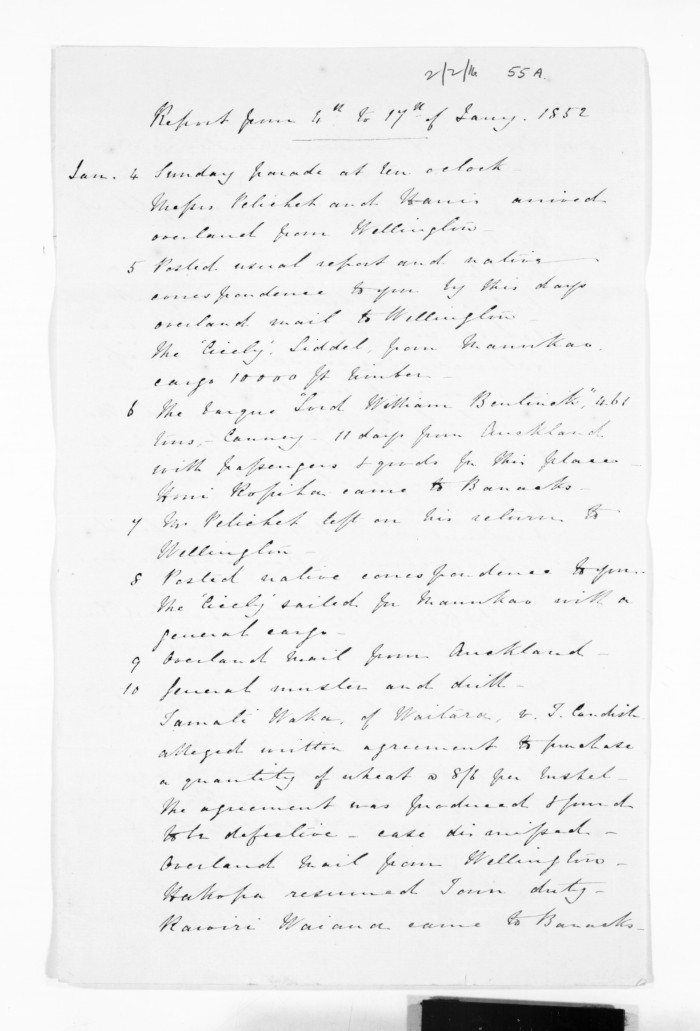 2/2/16 55A
Report from 4th to 17th of Jany. 1852
Jan. 4 Sunday parade at ten o'clock -
Messrs Pelichet and Harris arrived
overland from Wellington -
5 Posted usual report and native
correspondence to you by this days
overland mail to Wellington -
The 'Cicely', Liddel, from Manukao,
cargo 10000 ft timber -
6 The barque "Lord William Bentinck", 461
tons, - Canney - 11 days from Auckland
with passengers & goods for this place -
Honi Ropiha came to Barracks -
7 Mr Pelichet left on his return to
Wellington -
8 Posted native correspondence to you -
The 'Cicely' sailed for Manukao with a
general cargo -
9 Overland mail from Auckland -
10 General muster and drill -
Tamati Waka, of Waitara, v. T. Candish
alleged written agreement to purchase
a quantity of wheat @ 8/6 per bushel -
The agreement was produced & found
to be defective - case dismissed -
Overland mail from Wellington -
Hakopa resumed Town duty -
Rawiri Waiaua came to Barracks -